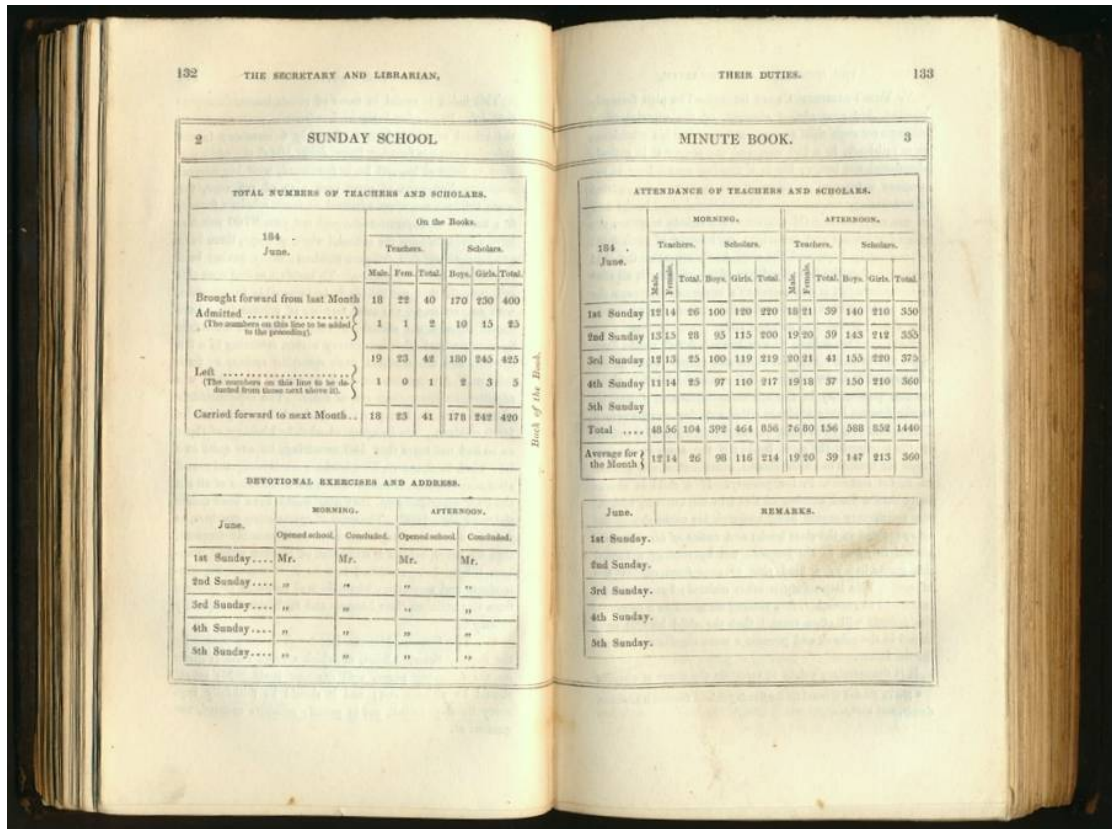 132 THE SECRETARY AND LIBRARIAN,
2 SUNDAY SCHOOL
TOTAL NUMBERS OF TEACHERS AND SCHOLARS.
184 .
June.
On the Books.
Teachers. Scholars.
Male. Fem. Total. Boys. Girls. Total.
Brought forward from last Month 18 22 40 170 230 400
Admitted ..................
(The numbers on this line to be added
to the preceding). 1 1 2 10 15 25
19 23 42 180 245 425
Left ......................
(The numbers on this line to be de-
ducted from those next above it). 1 0 1 2 3 5
Carried forward to next Month .. 18 23 41 178 242 420
DEVOTIONAL EXERCISES AND ADDRESS.
June.
MORNING. AFTERNOON.
Opened school. Concluded. Opened school. Concluded.
1st Sunday .... Mr. Mr. Mr. Mr.
2nd Sunday .... ,, ,, ,, ,,
3rd Sunday .... ,, ,, ,, ,,
4th Sunday .... ,, ,, ,, ,,
5th Sunday .... ,, ,, ,, ,,
Back of the Book.
THEIR DUTIES. 133
MINUTE BOOK. 3
ATTENDANCE OF TEACHERS AND SCHOLARS.
184 .
June.
MORNING. AFTERNOON.
Teachers. Scholars. Teachers. Scholars.
Male. Female. Total. Boys. Girls. Total. Male. Female. Total. Boys. Girls. Total.
1st Sunday 12 14 26 100 120 220 18 21 39 140 210 350
2nd Sunday 13 15 28 95 115 200 19 20 39 143 212 355
3rd Sunday 12 13 25 100 119 219 20 21 41 155 220 375
4th Sunday 11 14 25 97 110 217 19 18 37 150 210 360
5th Sunday
Total .... 48 56 104 392 464 856 76 80 156 588 852 1440
Average for
the Month 12 14 26 98 116 214 19 20 39 147 213 360
June. REMARKS.
1st Sunday.
2nd Sunday.
3rd Sunday.
4th Sunday.
5th Sunday.